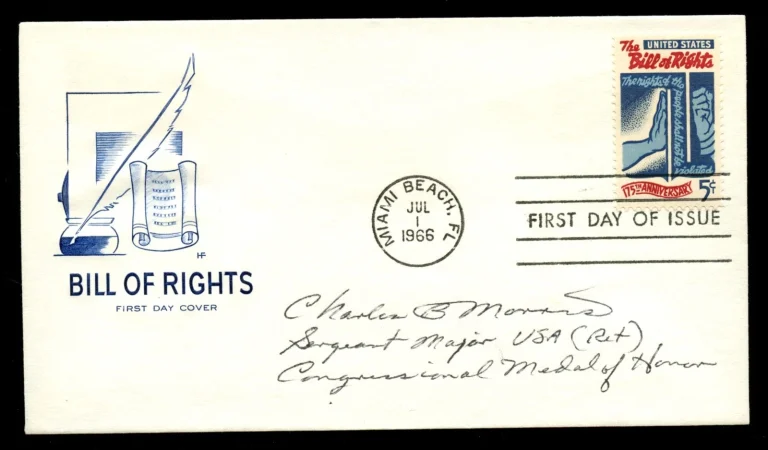 The UNITED STATES
Bill of Rights
The rights of the people shall not be violated
175TH ANNIVERSARY 5¢
MIAMI BEACH, FL
JUL
1
1966
FIRST DAY OF ISSUE
HF
BILL OF RIGHTS
FIRST DAY COVER
Charles B Morris
Sergeant Major USA (Ret)
Congressional Medal of Honor